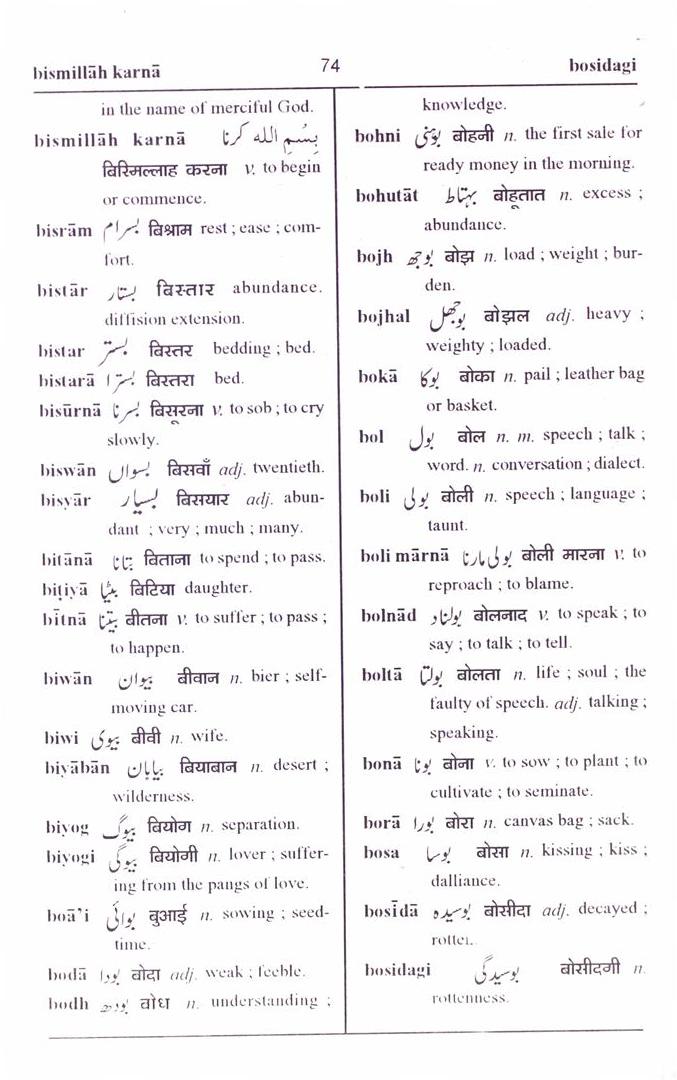 bismillāh karnā 74 bosidagi
in the name of merciful God.
bismillāh karnā بِسْمِ الله کرنا
बिस्मिल्लाह करना v. to begin
or commence.
bisrām بسرام बिश्राम rest ; ease ; com-
fort.
bistār بستار बिस्तार abundance.
diffision extension.
bistar بستر बिस्तर bedding ; bed.
bistarā بسترا बिस्तरा bed.
bisūrnā بسرنا बिसूरना v. to sob ; to cry
slowly.
biswān بسواں बिसवाँ adj. twentieth.
bisyār بسیار बिसयार adj. abun-
dant ; very ; much ; many.
bitānā بتانا बिताना to spend ; to pass.
biṭiyā بیٹیا बिटिया daughter.
bītnā بیتنا बीतना v. to suffer ; to pass ;
to happen.
biwān بیوان बीवान n. bier ; self-
moving car.
biwi بیوی बीवी n. wife.
biyābān بیابان बियाबान n. desert ;
wilderness.
biyog بیوگ बियोग n. separation.
biyogi بیوگی बियोगी n. lover ; suffer-
ing from the pangs of love.
boā'i بوائی बुआई n. sowing ; seed-
time.
bodā بودا बोदा adj. weak ; feeble.
bodh بودھ बोध n. understanding ;
knowledge.
bohni بوہنی बोहनी n. the first sale for
ready money in the morning.
bohutāt بہتاط बोहूतात n. excess ;
abundance.
bojh بوجھ बोझ n. load ; weight ; bur-
den.
bojhal بوجھل बोझल adj. heavy ;
weighty ; loaded.
bokā بوکا बोका n. pail ; leather bag
or basket.
bol بول बोल n. m. speech ; talk ;
word. n. conversation ; dialect.
boli بولی बोली n. speech ; language ;
taunt.
boli mārnā بولی مارنا बोली मारना v. to
reproach ; to blame.
bolnād بولناد बोलनाद v. to speak ; to
say ; to talk ; to tell.
boltā بولتا बोलता n. life ; soul ; the
faulty of speech. adj. talking ;
speaking.
bonā بونا बोना v. to sow ; to plant ; to
cultivate ; to seminate.
borā بورا बोरा n. canvas bag ; sack.
bosa بوسا बोसा n. kissing ; kiss ;
dalliance.
bosīdā بوسیدہ बोसीदा adj. decayed ;
rotter.
bosidagi بوسیدگی बोसीदगी n.
rottenness.